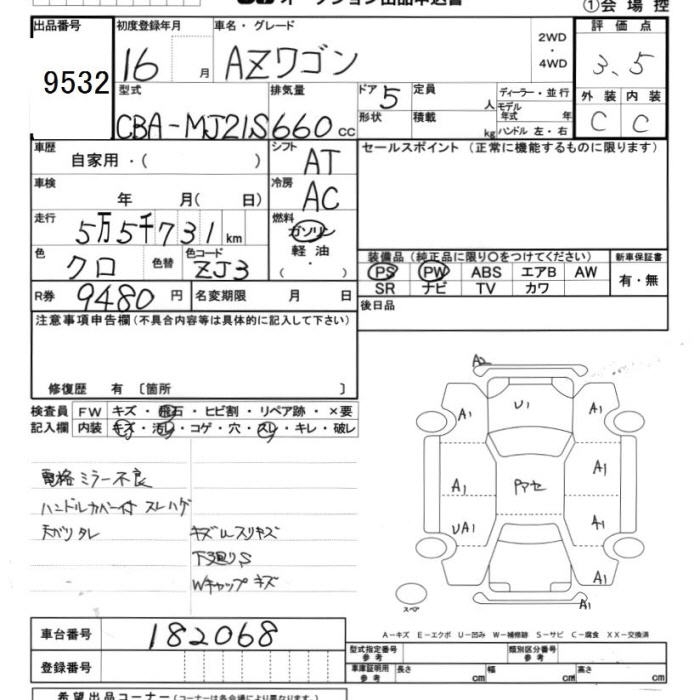 オークション出品申込書 ①会場控
出品番号 初度登録年月 車名・グレード 評価点
9532 16 月 AZワゴン 2WD ・ 4WD 3.5
型式 排気量 ドア 定員 ディーラー・並行 外装 内装
CBA-MJ21S 660 cc 5 人 モデル年式 年 C C
形状 積載 kg ハンドル 左・右
車歴 自家用・( ) シフト AT セールスポイント (正常に機能するものに限ります)
車検 年 月( 日) 冷房 AC
走行 5万5千731 km 燃料 ガソリン
軽油
・( )
色 クロ 色替 色コード ZJ3
装備品 (純正品に限り○をつけてください) 新車保証書
PS PW ABS エアB AW 有・無
SR ナビ TV カワ
R券 9480 円 名変期限 月 日 後日品
注意事項申告欄 (不具合内容等は具体的に記入して下さい)
修復歴 有 〔箇所 〕
検査員 FW キズ・飛石・ヒビ割・リペア跡・×要
記入欄 内装 キズ・汚レ・コゲ・穴・スレ・キレ・破レ
電格ミラー不良
ハンドルカバー付 スレハゲ
天がリタレ キズUスリキズ
下廻りS
Wキャップキズ
A2
A1 U1 A1
A1 アセ A1
UA1 A1
A1
スペア
A-キズ E-エクボ U-凹み W-補修跡 S-サビ C-腐食 XX-交換済
車台番号 182068
型式指定番号 参考 類別区分番号 参考
登録番号 車庫証明用 参考 長さ cm 幅 cm 高さ cm
希望出品コーナー (コーナーは各会場により異なります。)